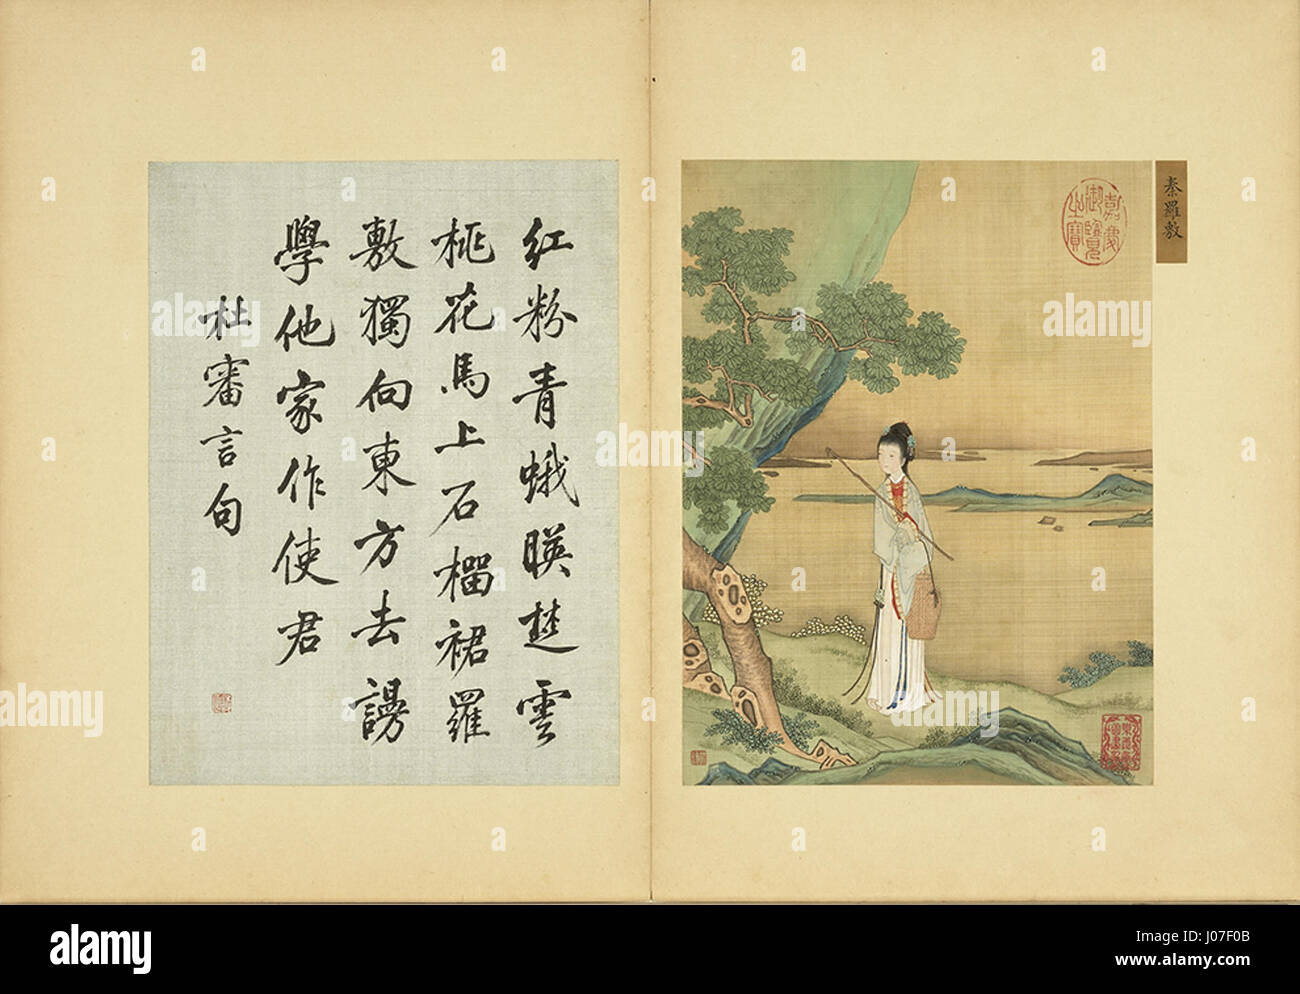 秦羅敷
嘉慶御覽之寶
紅粉青蛾暎楚雲
桃花馬上石榴裙羅
敷獨向東方去謾
學他家作使君
杜審言句
alamy
Image ID: J07F0B
www.alamy.com